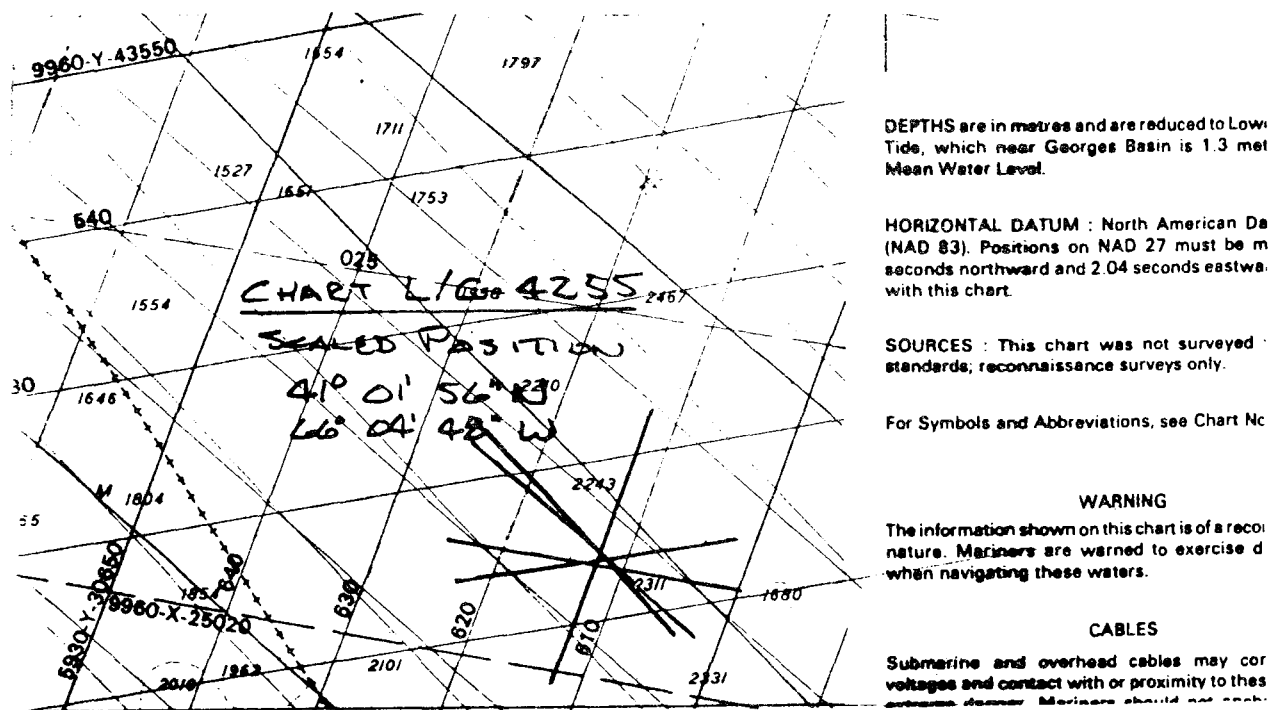 9960-Y-43550
1654
1797
1711
1527
1651
1753
640
025
CHART L/C 4255
2467
1554
SCALED POSITION
30
1646
41° 01' 56" N
2210
66° 04' 48" W
2243
M
1804
65
5930-Y-30650
1854
640
9960-X-25020
630
620
610
2311
1680
2016
1963
2101
2331
DEPTHS are in metres and are reduced to Low
Tide, which near Georges Basin is 1.3 met
Mean Water Level.
HORIZONTAL DATUM : North American Da
(NAD 83). Positions on NAD 27 must be m
seconds northward and 2.04 seconds eastwa
with this chart.
SOURCES : This chart was not surveyed
standards; reconnaissance surveys only.
For Symbols and Abbreviations, see Chart No
WARNING
The information shown on this chart is of a recon
nature. Mariners are warned to exercise d
when navigating these waters.
CABLES
Submarine and overhead cables may con
voltages and contact with or proximity to thes
extreme danger. Mariners should not anch